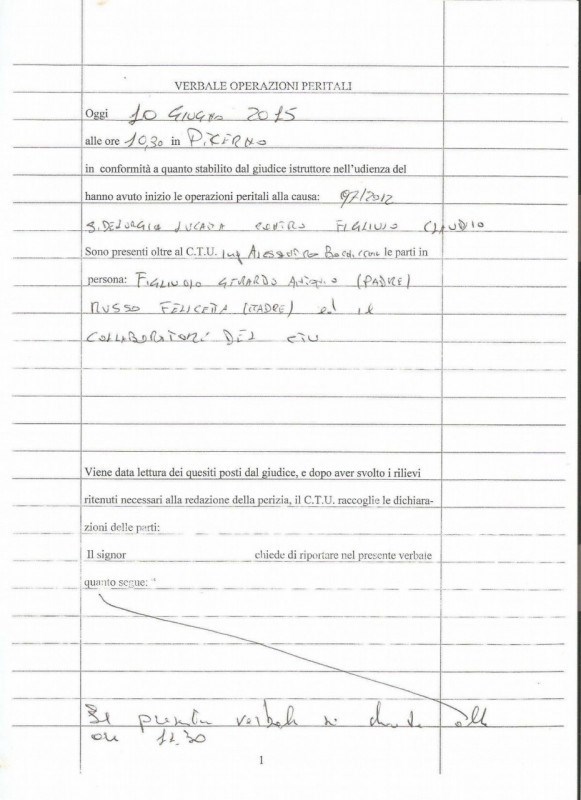 VERBALE OPERAZIONI PERITALI
Oggi 10 GIUGNO 2015
alle ore 10,30 in PICERNO
in conformità a quanto stabilito dal giudice istruttore nell'udienza del
hanno avuto inizio le operazioni peritali alla causa: 97/2012
CONTRO FIGLIUOLO CLAUDIO
Sono presenti oltre al C.T.U. ing le parti in
persona: FIGLIUOLO GERARDO (PADRE)
RUSSO FELICETTA (MADRE) ed il
COLLABORATORE DEL CTU
Viene data lettura dei quesiti posti dal giudice, e dopo aver svolto i rilievi
ritenuti necessari alla redazione della perizia, il C.T.U. raccoglie le dichiara-
zioni delle parti:
Il signor chiede di riportare nel presente verbale
quanto segue:
Il presente verbale si chiude alle
ore 11.30
1